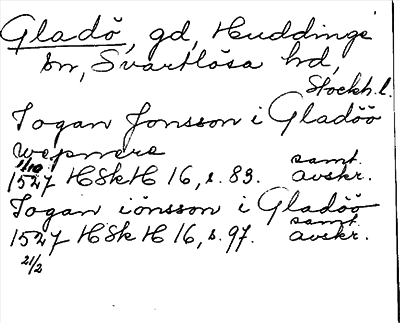 Gladö, gd, Huddinge
sn, Svartlösa hd,
Stockh. l.
Jogan Jonsson i Gladöö
wepnere
1/10 samt.
1527 HSkH 16, s. 83. avskr.
Jogan iönsson i Gladöö
samt.
1527 HSk H 16, s. 97. avskr.
21/2